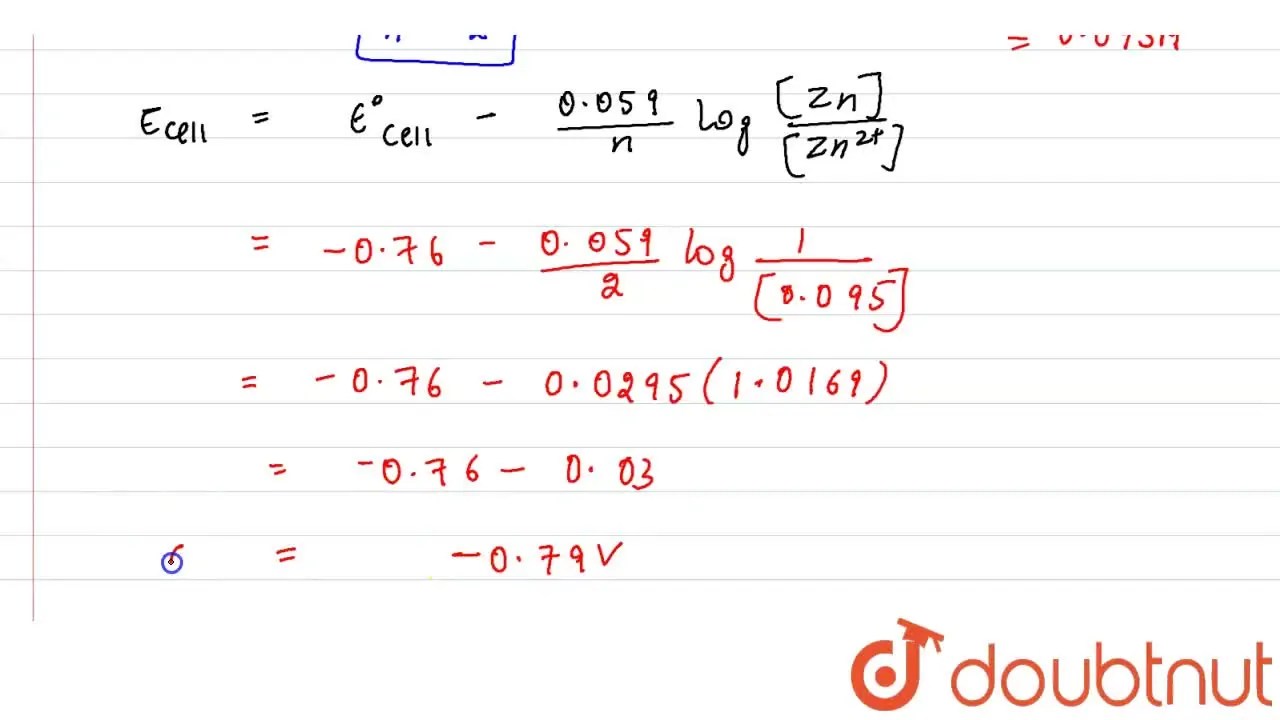 = 0.095M
E cell = E° cell - 0.059/n log [Zn]/[Zn²⁺]
= -0.76 - 0.059/2 log 1/[0.095]
= -0.76 - 0.0295(1.0169)
= -0.76 - 0.03
= -0.79V
doubtnut